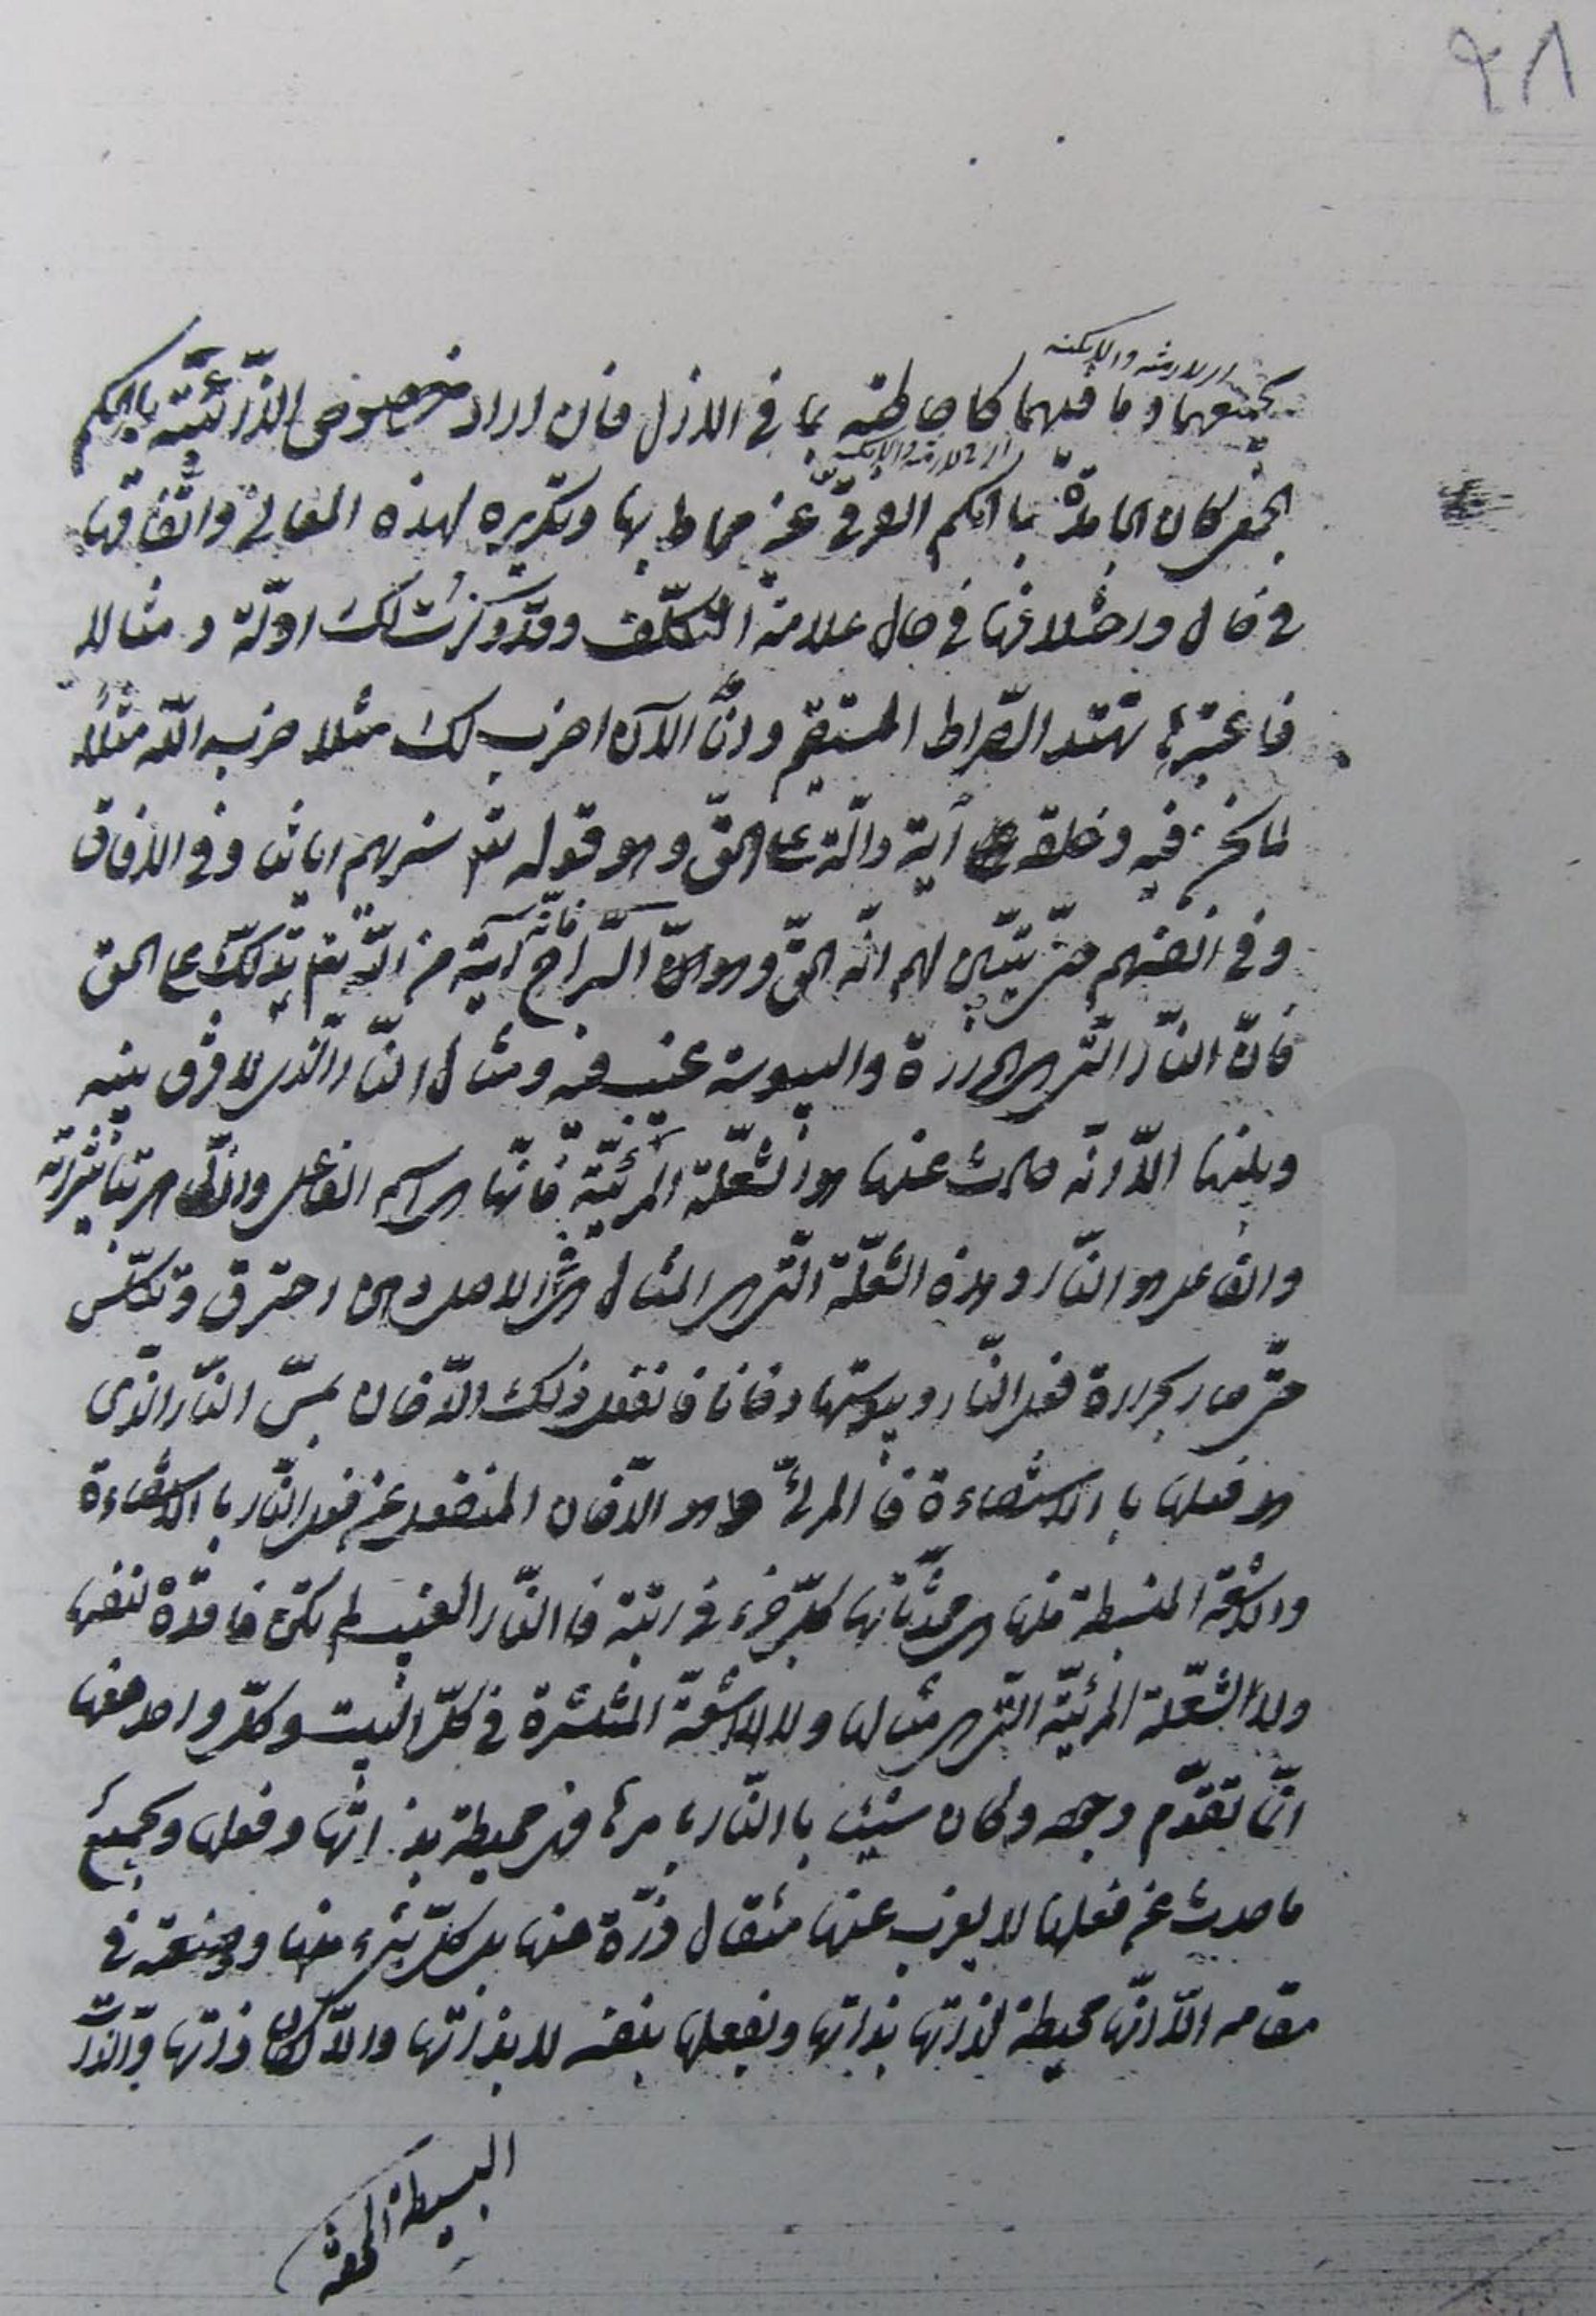 ٩٨
بجميعهما وما فيهما كاحاطته بما في الازل فان اراد خصوص الذاتية بالحكم
الجمعى كان الجامدة بالحكم الفرقى غير محاط بها وتكريره لهذه المعانى واتفاقها
في حال واختلافها في حال علامة التكلف وقد ذكرت لك ادلة ومثالا
فاعتبر بها تهتد الصراط المستقيم وانا الآن اضرب لك مثلا ضربه الله مثلا
لما نحن فيه وخلقه آية دالة على الحق وهو قوله تعالى سنريهم اياتنا في الافاق
وفي انفسهم حتى يتبين لهم انه الحق وهو السراج فانه آية من الله تعالى تدلك على الحق
فان النار التى هي الحرارة واليبوسة غيب فيه ومثال النار الذى لا فرق بينه
وبينها الا انه حادث عنها هو الشعلة المرئية فانها هي اسم الفاعل
والفاعل هو النار وهذه الشعلة التى هي المثال هي في الاصل دهن احترق وتكلس
حتى صار بحرارة فعل النار ويبوستها دخانا فانفعل ذلك الدخان بمس النار الذى
هو فعلها بالاستضاءة فالمرئى هو الدخان المنفعل عن فعل النار بالاستضاءة
والاشعة المنبسطة منها هي محدثاتها كل جزء في رتبة فالنار الغيب لم تكن فاقدة لنفسها
ولا الشعلة المرئية التى هي مثالها ولا الاشعة المنتشرة في كل البيت وكل واحد منها
انما تقوم وجد وكان شيئا بالنار بامرها فهى محيطة بذاتها وفعلها وبجميع
ما حدث عن فعلها لا يعزب عنها مثقال ذرة منها بل كل شىء منها وضعته في
مقامه الا انها محيطة لذاتها بذاتها وبفعلها بنفسه لا بذاتها والا لكان ذاتها والذات
البسيطة الحقة